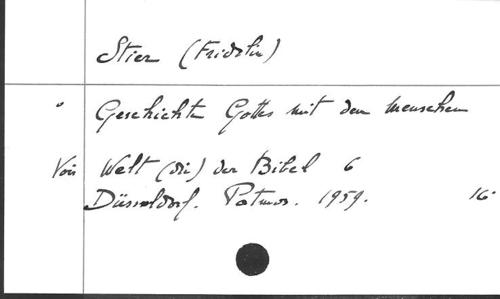 Stier (Fridolin)
° Geschichte Gottes mit dem Menschen
Voir Welt (die) der Bibel 6
Düsseldorf. Patmos. 1959. 16°